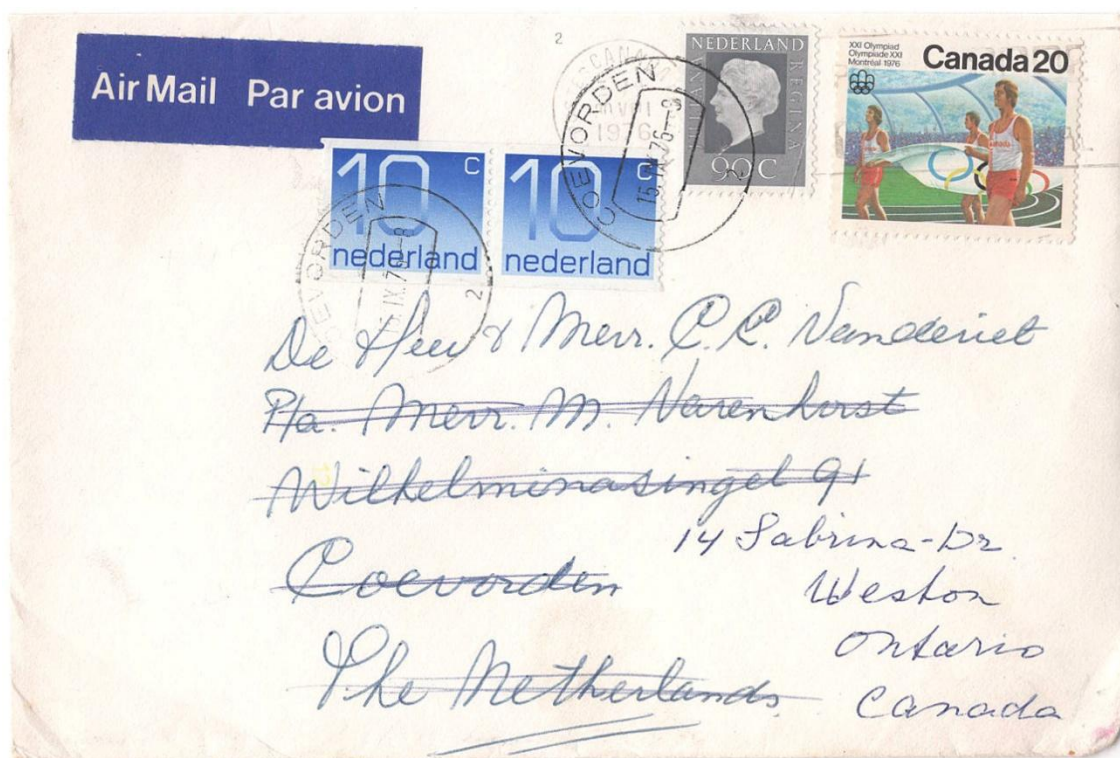 Air Mail Par avion
2
CANADA
1976
NEDERLAND
REGINA
90 C
XXI Olympiad
Olympiade XXI
Montréal 1976
Canada 20
Canada
10 C
nederland
10 C
nederland
COEVORDEN
15.IX.76-8
2
COEVORDEN
15.IX.7 -8
2
De Heer & Mevr. C.R. Vanderiet
P/a. Mevr. M. Varenhorst
Wilhelminasingel 91
Coevorden
The Netherlands
14 Sabrina-Dr.
Weston
Ontario
Canada